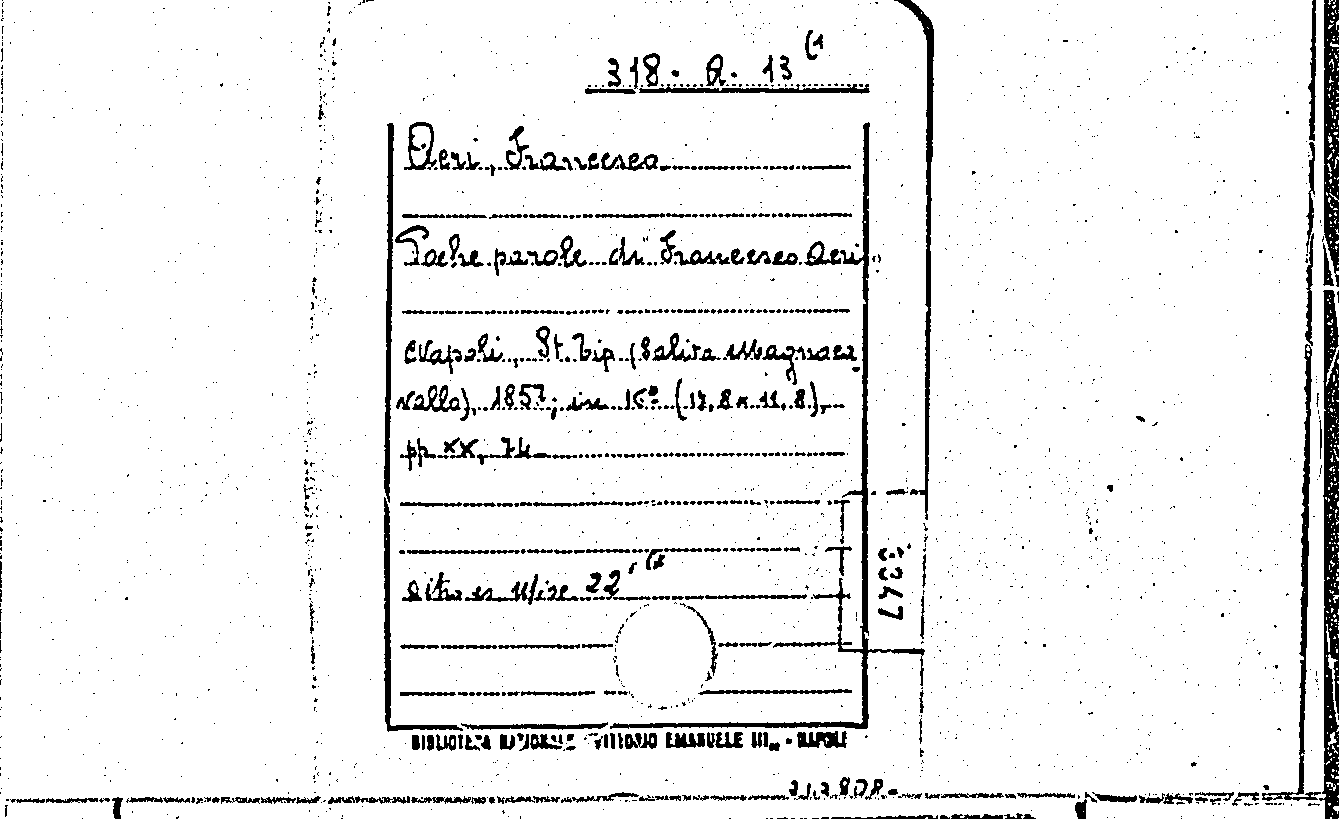 318. Q. 13 (1
Qeri, Francesco
Poche parole di Francesco Qeri.
Napoli, St. Tip. (Salita Magnoca_
vallo), 1857; in 16º (17,8 x 11,8),
pp XX, 74
altro es 22 (2
3347
BIBLIOTECA NAZIONALE VITTORIO EMANUELE III. - NAPOLI
212808